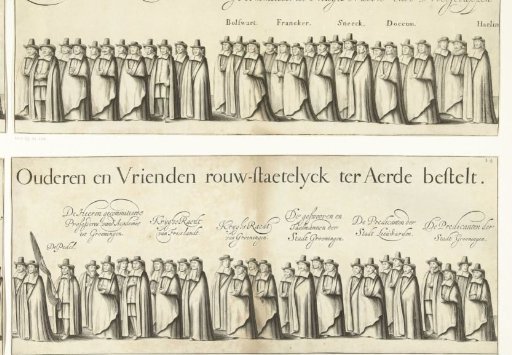 Bolswart. Francker. Sneeck. Doccum. Harlin
Ouderen en Vrienden rouw-staetelyck ter Aerde bestelt.
De Heeren gecommitteerde
Professoren van d'Academie
tot Groeningen.
Kryghs Raedt
van Frieslandt.
Kryghs Raedt
van Groeningen.
De geswooren en
Taelmannen der
Stadt Groeningen.
De Predicanten der
Stadt Leeuwarden.
De Predicanten der
Stadt Groeningen.
De Pedel.